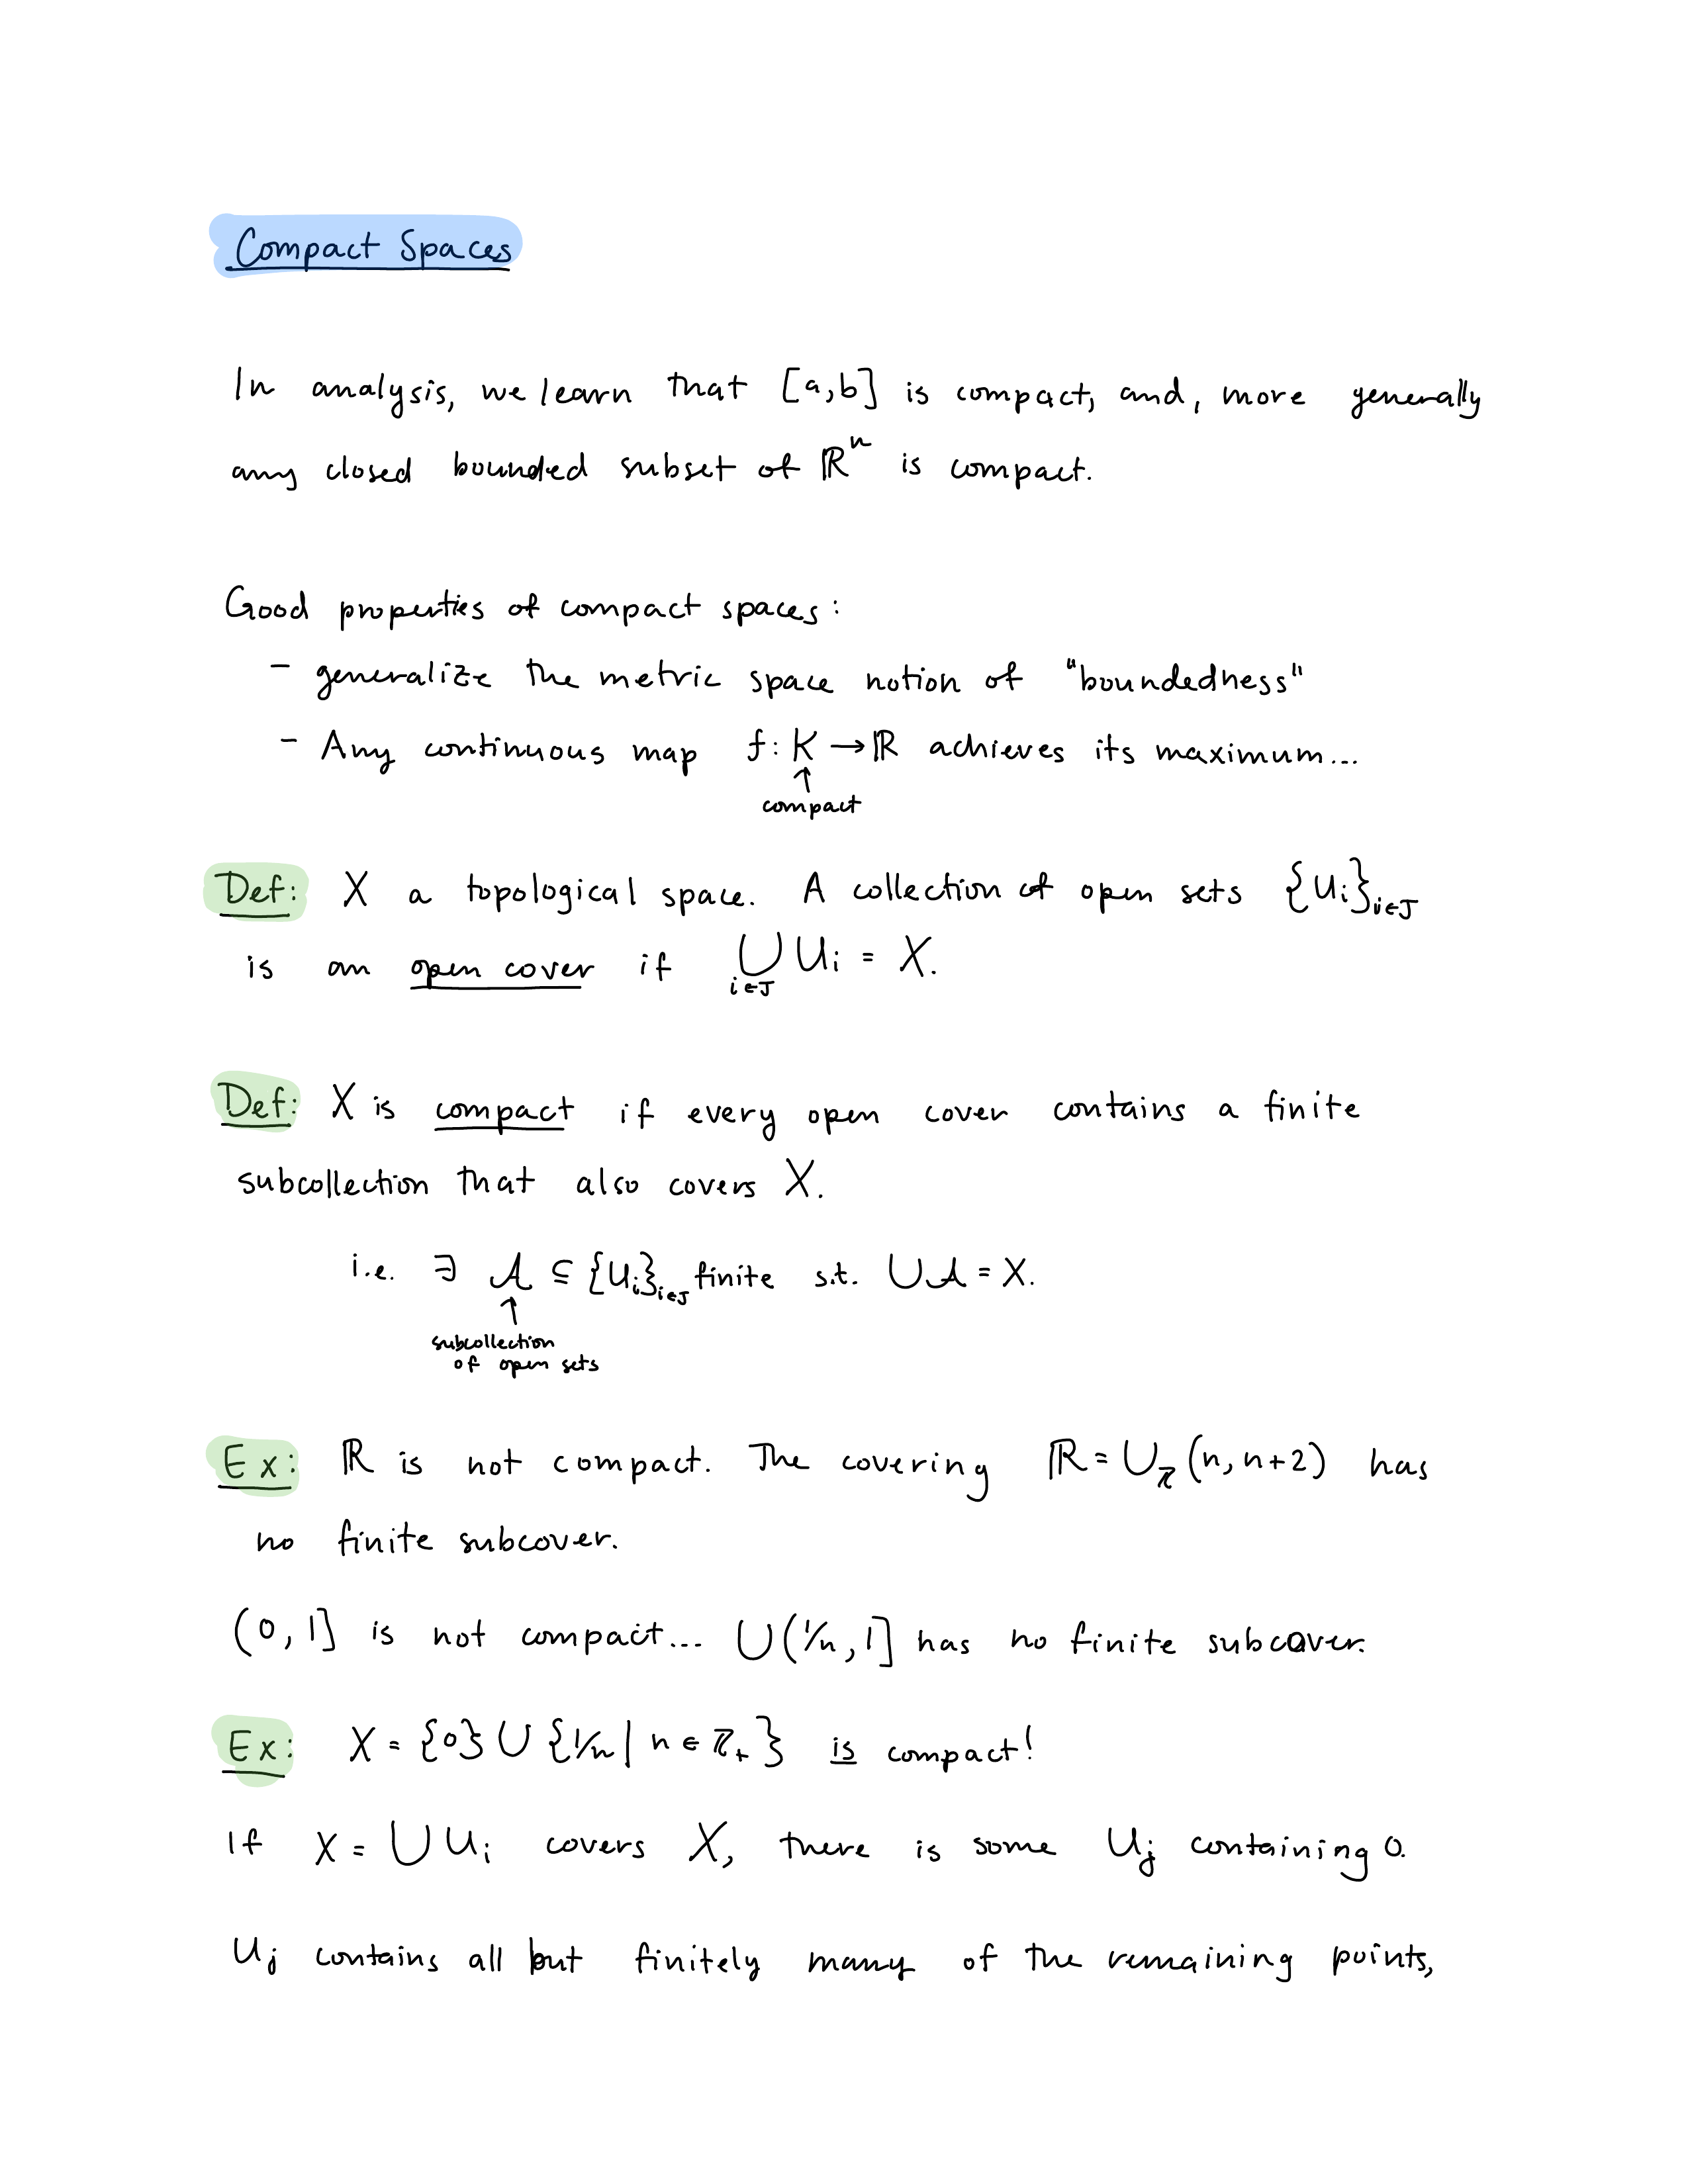 Compact Spaces
In analysis, we learn that [a,b] is compact, and, more generally
any closed bounded subset of ℝⁿ is compact.
Good properties of compact spaces:
- generalize the metric space notion of "boundedness"
- Any continuous map f: K → ℝ achieves its maximum...
↑
compact
Def: X a topological space. A collection of open sets {Uᵢ}ᵢ∈J
is an open cover if ⋃ Uᵢ = X.
i∈J
Def: X is compact if every open cover contains a finite
subcollection that also covers X.
i.e. ∃ 𝒜 ⊆ {Uᵢ}ᵢ∈J finite s.t. ⋃𝒜 = X.
↑
subcollection
of open sets
Ex: ℝ is not compact. The covering ℝ = ⋃_ℤ (n, n+2) has
no finite subcover.
(0, 1] is not compact... ⋃(1/n, 1] has no finite subcover.
Ex: X = {0} ∪ {1/n | n ∈ ℤ₊} is compact!
If X = ⋃ Uᵢ covers X, there is some Uⱼ containing 0.
Uⱼ contains all but finitely many of the remaining points,